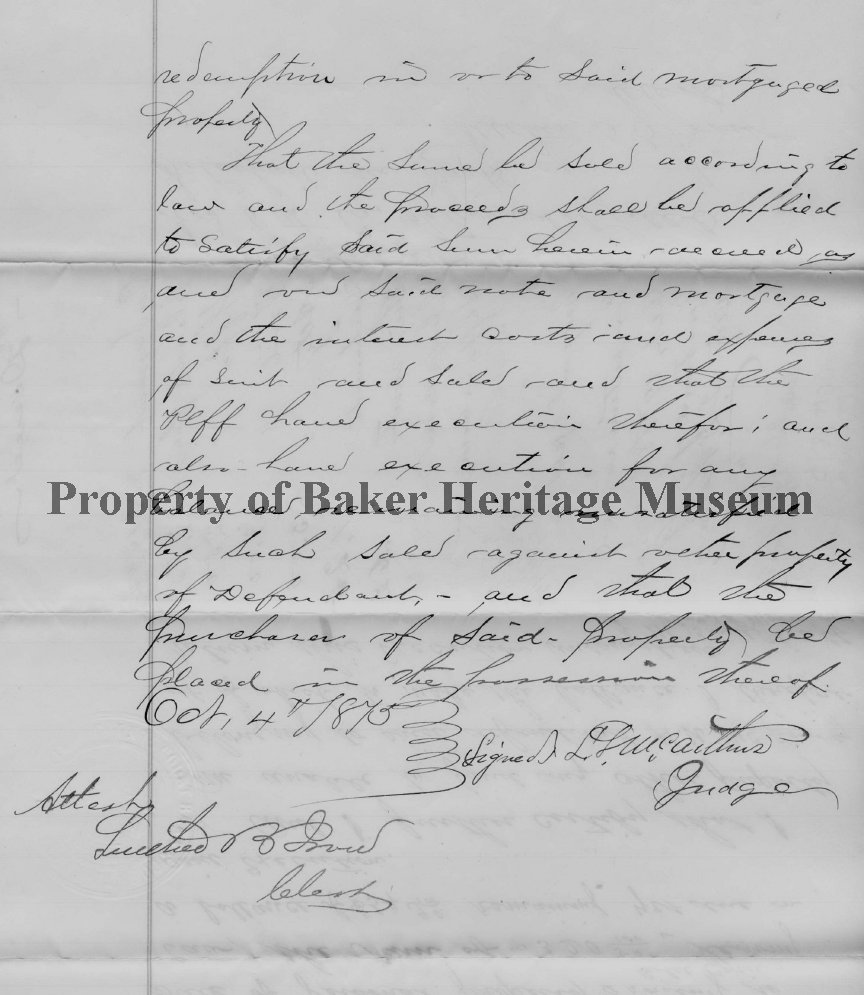 redemption in or to said mortgaged
property
That the same be sold according to
law and the proceeds shall be applied
to satisfy said sum herein accrued, as
and on said note and mortgage
and the interest costs and expenses
of suit and sale and that the
Plff have execution therefor; and
also have execution for any
Property of Baker Heritage Museum
balance remaining unsatisfied
by such sale against other property
of Defendant, - and that the
purchaser of said property be
placed in the possession thereof.
Oct, 4th 1875
(Signed) L. F. McArthur
Judge
Attest
B
Clerk